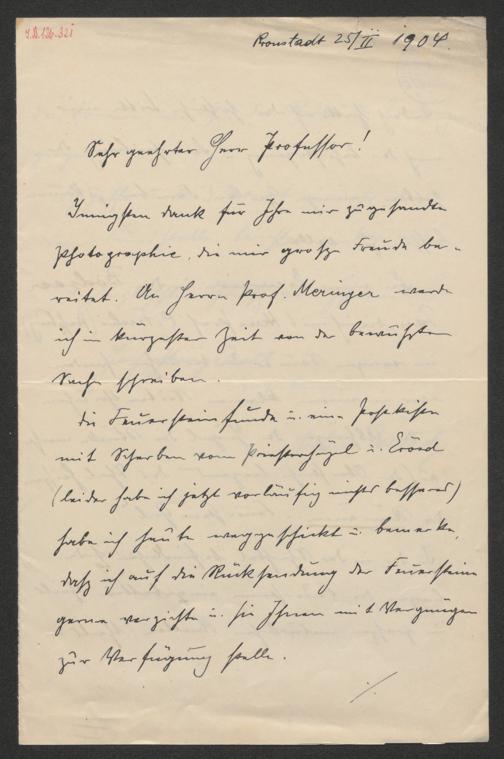 Kronstadt 25/II 1904.
Sehr geehrter Herr Professor!
Innigsten Dank für Ihre mir zugesandte
Photographie, die mir große Freude be-
reitet. An Herrn Prof. Meringer werde
ich in kürzester Zeit von der bewußten
Sache schreiben.
Die Feuersteinfunde u. eine Postkiste
mit Scherben vom Priesterhügel u. Erösd
(leider habe ich jetzt vorläufig nichts besseres)
habe ich heute weggeschickt u. bemerke,
daß ich auf die Rücksendung der Feuersteine
gerne verzichte u. sie Ihnen mit Vergnügen
zur Verfügung stelle.
./.